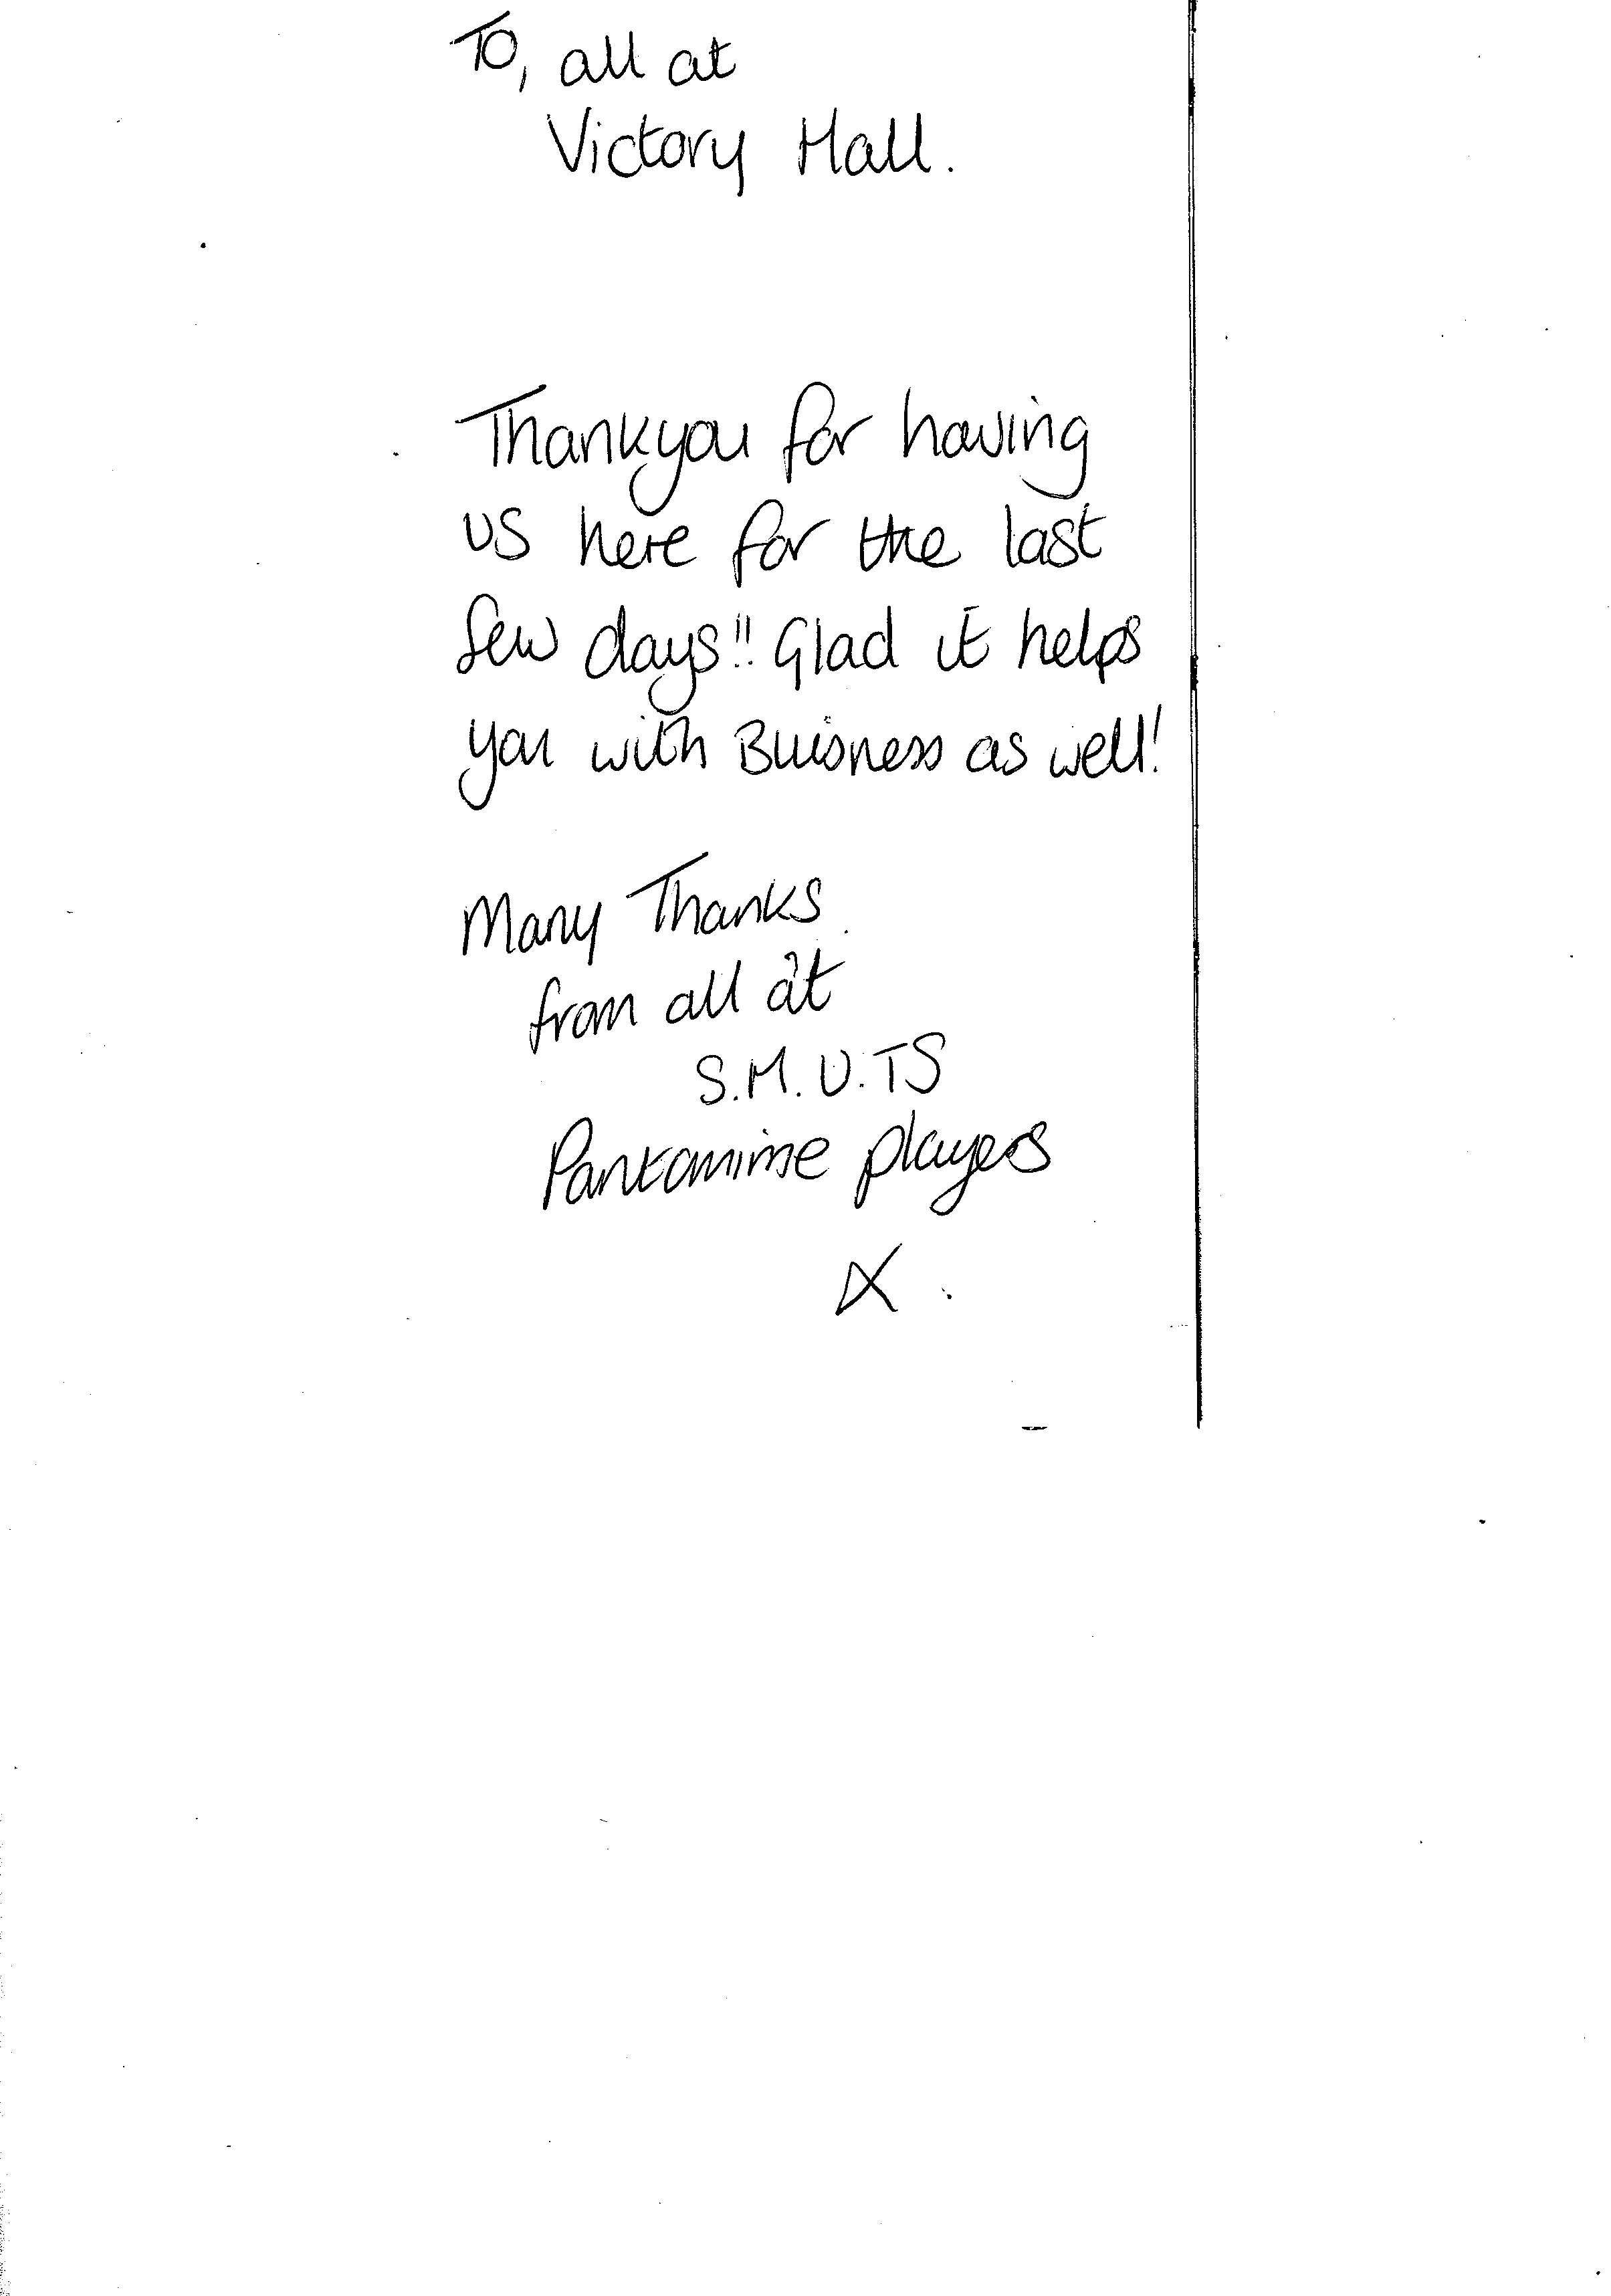 To, all at
Victory Hall.
Thankyou for having
us here for the last
few days!! Glad it helps
you with Buisness as well!
Many Thanks
from all at
S.M.U.TS
Pantomime players
X.